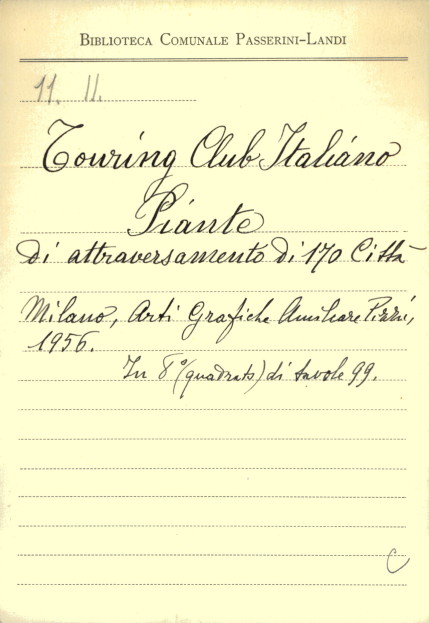 BIBLIOTECA COMUNALE PASSERINI-LANDI
11. 11.
Touring Club Italiano
Piante
di attraversamento di 170 Città
Milano, Arti Grafiche Amilcare Pizzi,
1956.
In 8° (quadrato) di tavole 99.
C